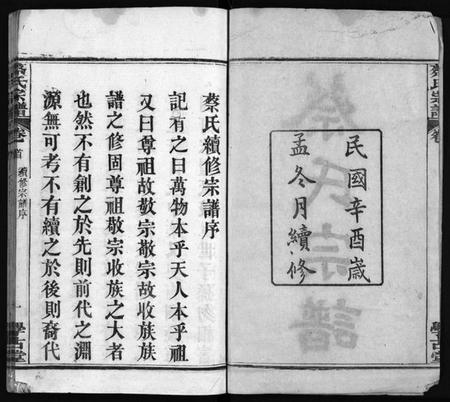 蔡氏宗譜
卷
學古堂
民國辛酉歲
孟冬月續修
蔡氏續修宗譜序
記有之曰萬物本乎天人本乎祖
又曰尊祖故敬宗敬宗故收族族
譜之修固尊祖敬宗收族之大者
也然不有創之於先則前代之淵
源無可考不有續之於後則裔代
蔡氏宗譜
卷首
續修宗譜序
一
學古堂